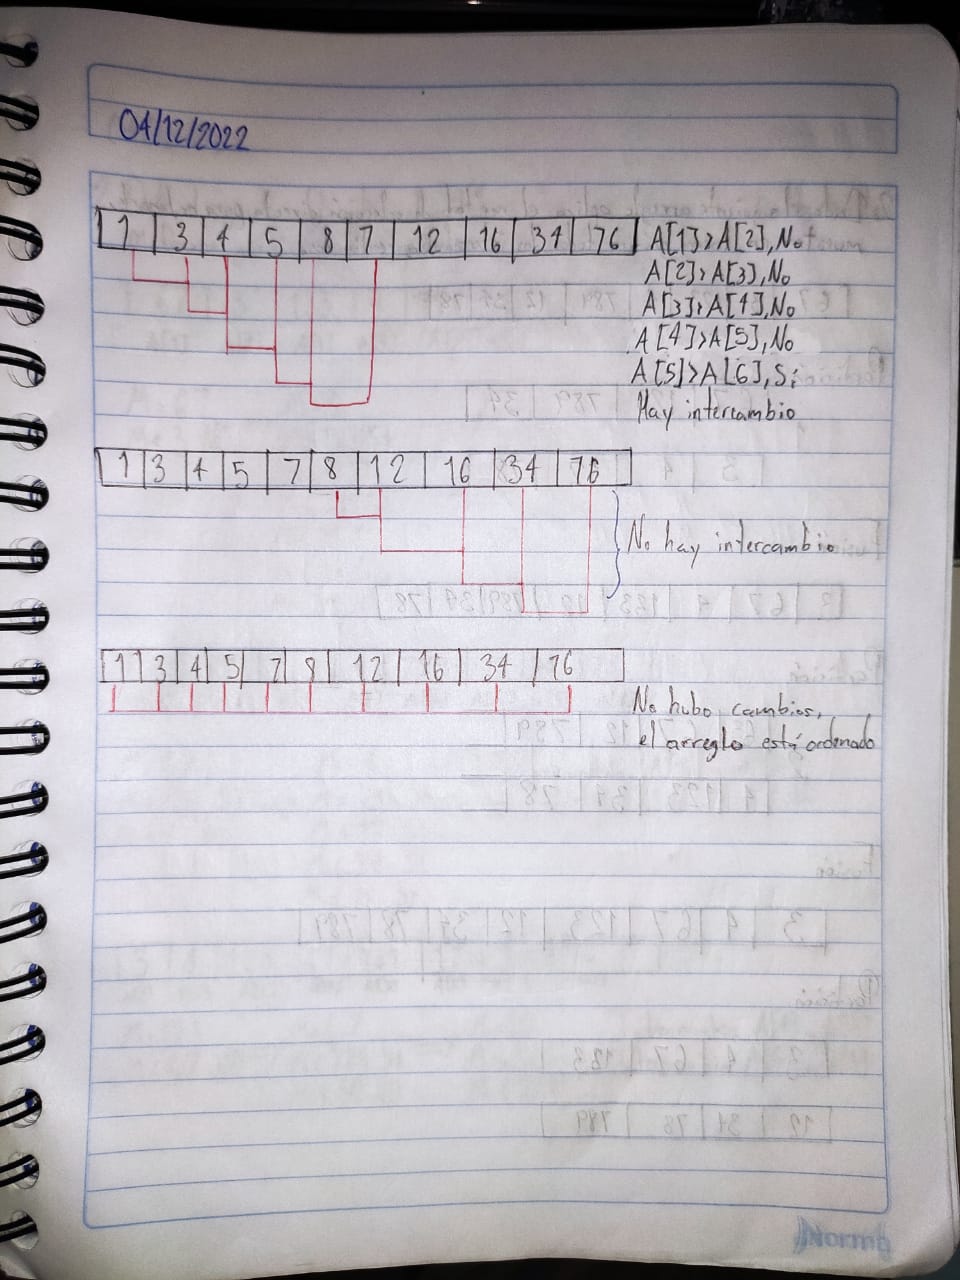 04/12/2022
1 3 4 5 8 7 12 16 34 76 A[1]>A[2], No
A[2]>A[3], No
A[3]>A[4], No
A[4]>A[5], No
A[5]>A[6], Sí
Hay intercambio
1 3 4 5 7 8 12 16 34 76
No hay intercambio
1 3 4 5 7 8 12 16 34 76
No hubo cambios,
el arreglo está ordenado
Norma